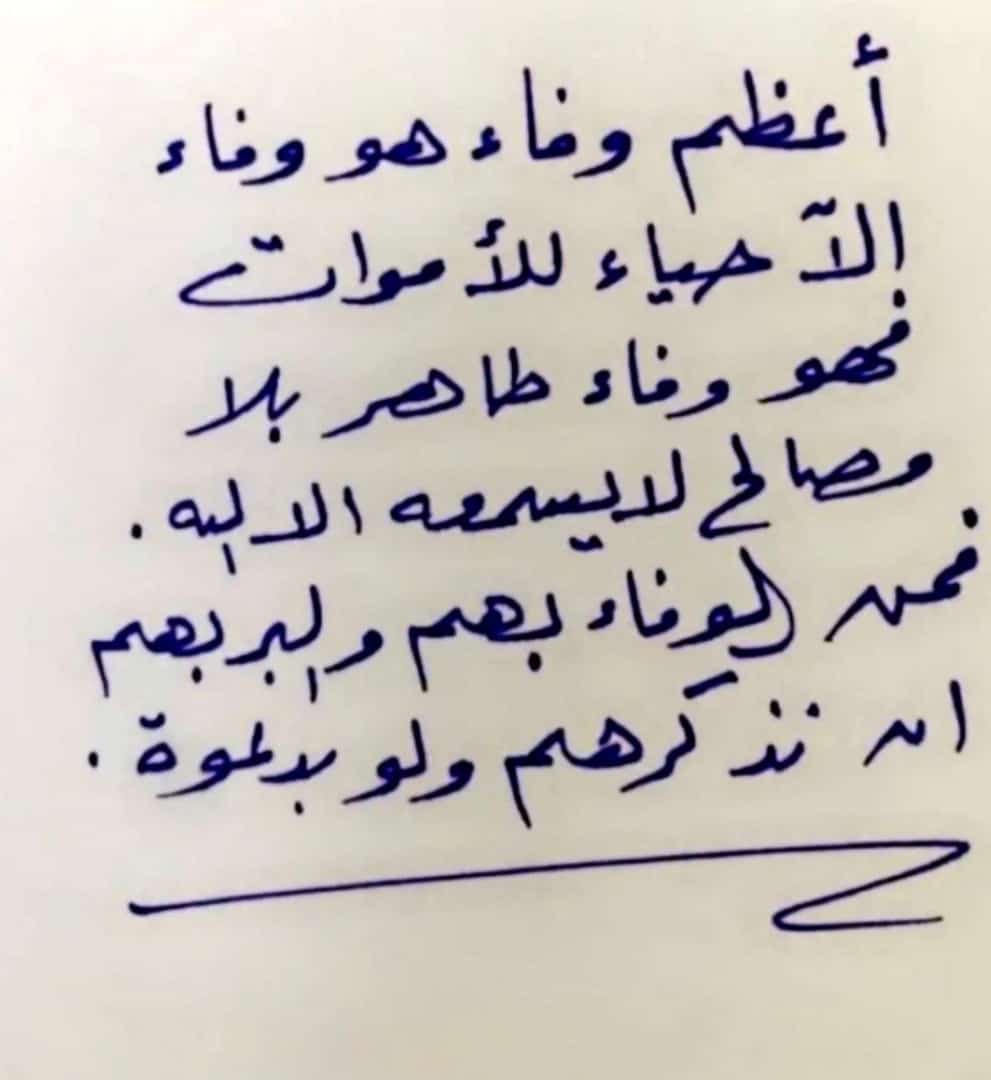 أعظم وفاء هو وفاء
الآحياء للأموات
فهو وفاء طاهر بلا
مصالح لا يسمعه الا الله .
فمن الوفاء بهم والبر بهم
ان نذكرهم ولو بدعوة .